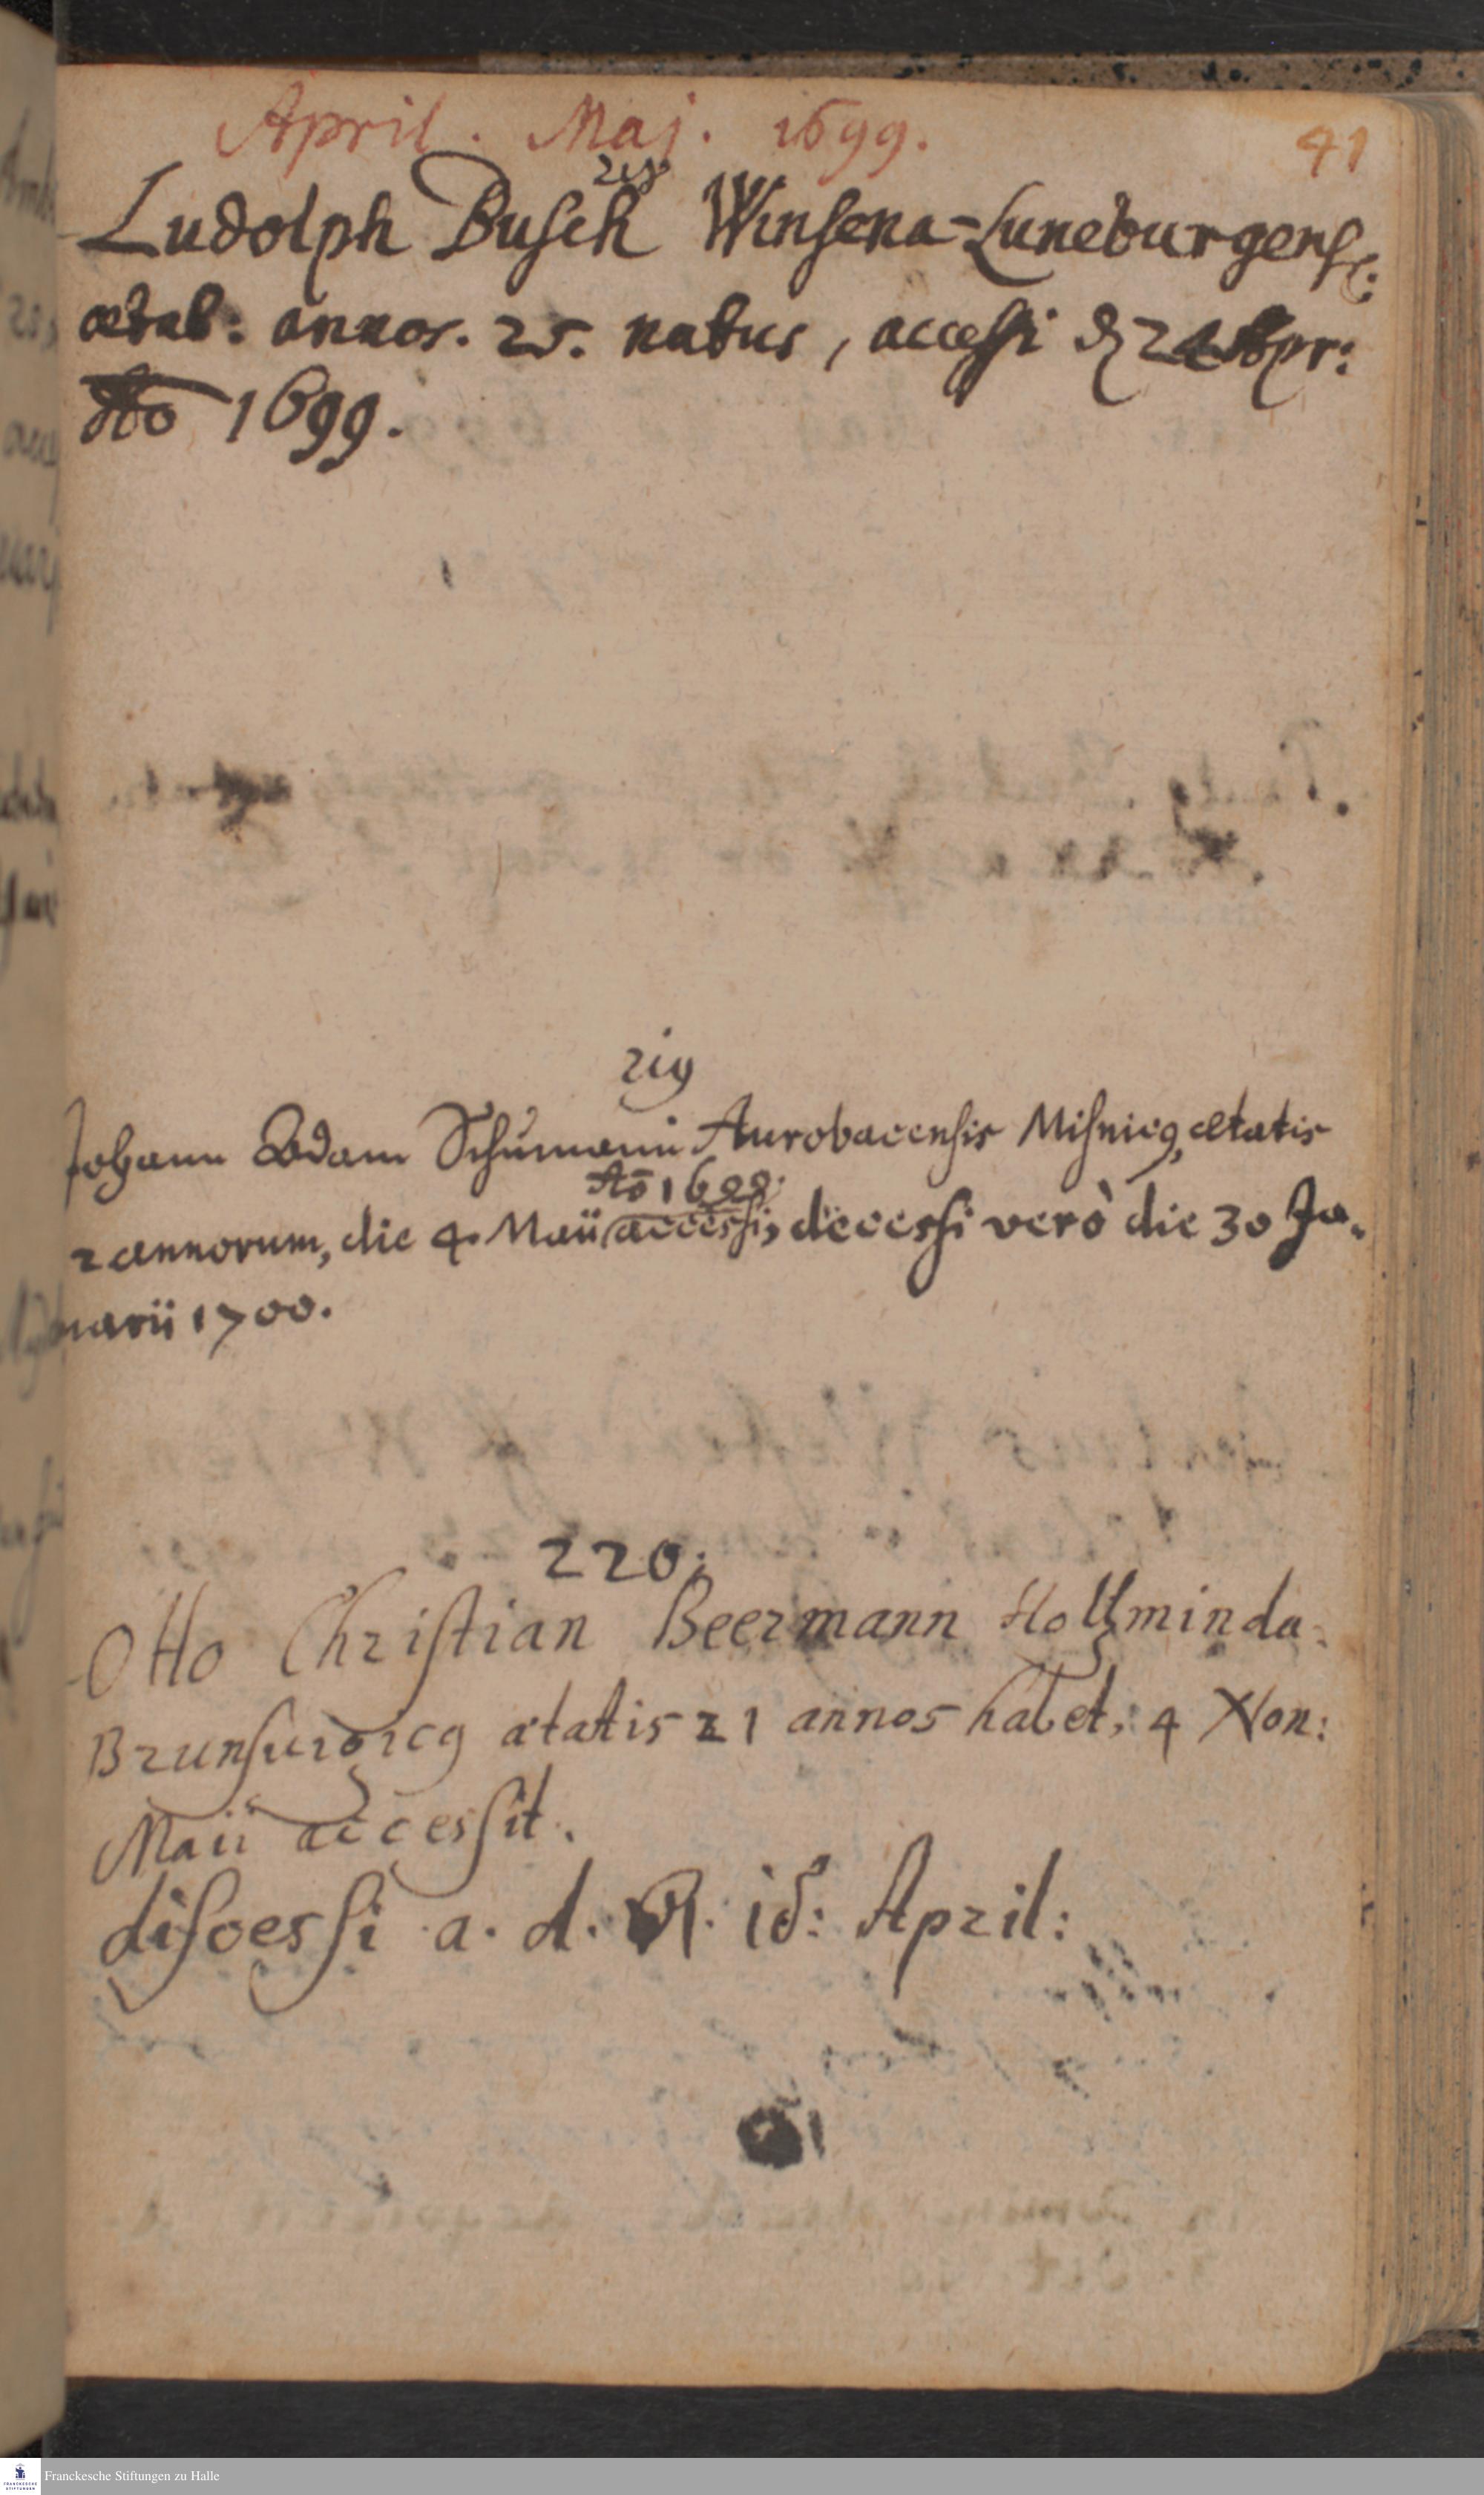 April. Maj. 1699.
41
218
Ludolph Busch Winsena-Luneburgens:
ætat: annos. 25. natus, accessi d. 24 Apr:
Ao 1699.
219
Johann Adam Schumann Aurobacensis Misnicus, ætatis
2 annorum, die 4. Maii accessi, decessi verò die 30 Ja-
Aō 1699.
nuarii 1700.
220.
Otto Christian Beermann Holtzminda-
Brunsuidicus ætatis 21 annos habet, 4 Non:
Maii accessit.
discessi a. d. id: April:
Franckesche Stiftungen zu Halle